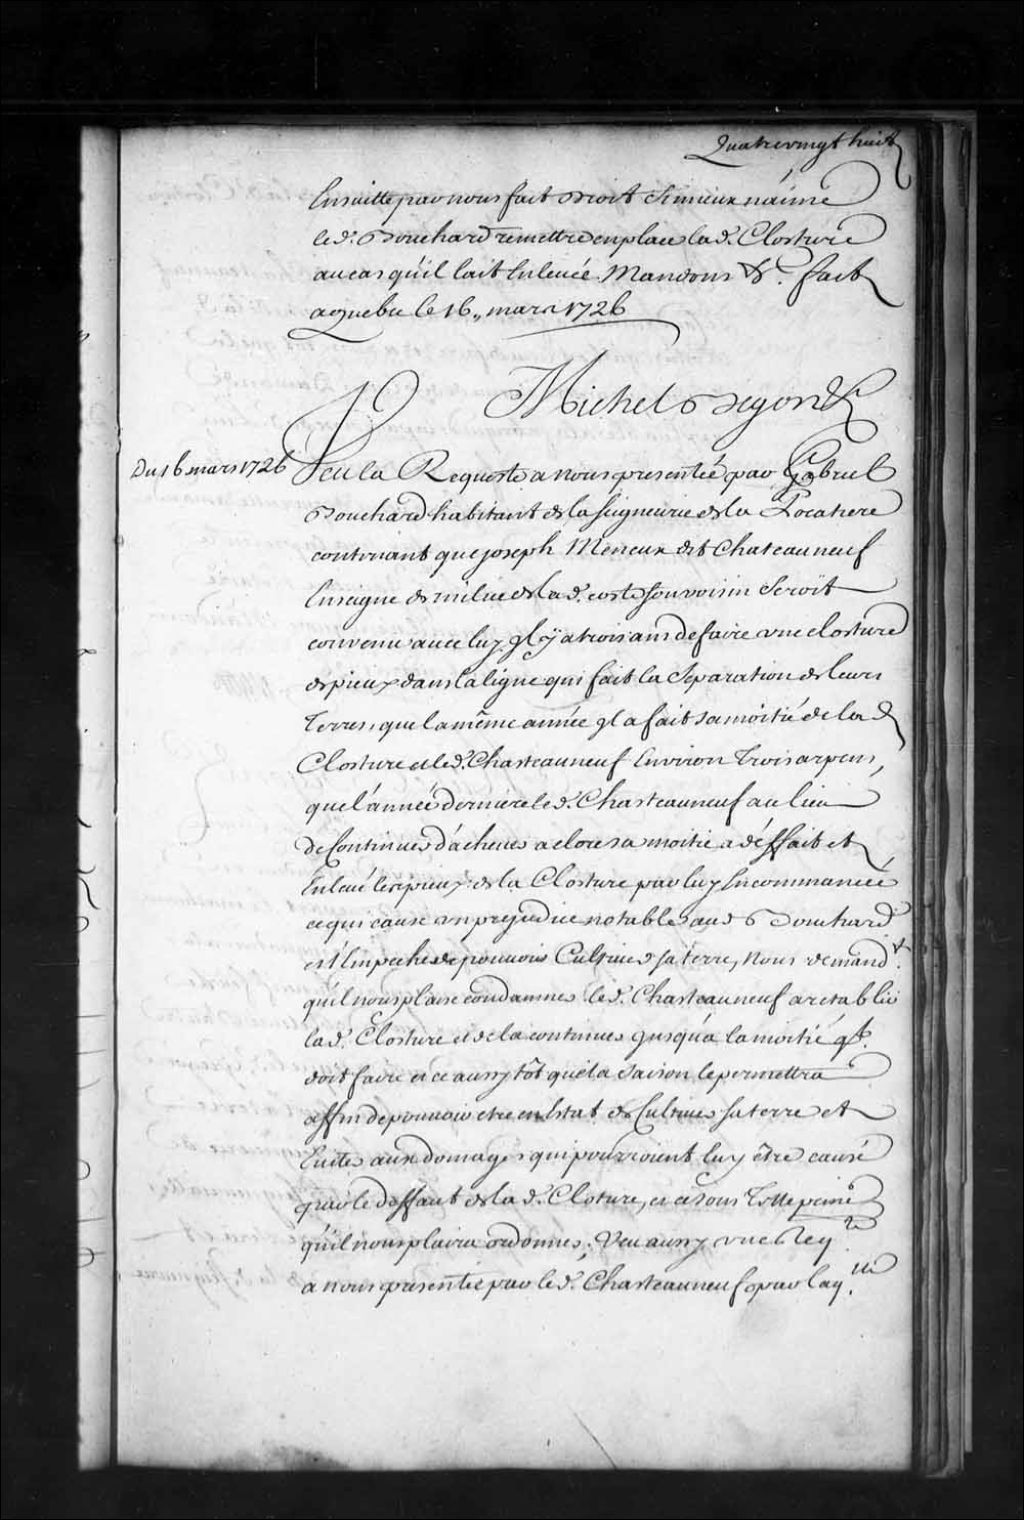 Quatrevingt huit
Ensuitte par nous fait droit si mieux n'aime
le d. Bouchard remettre en place la d. Closture
au cas qu'il l'ait Enlevée. Mandons &c. fait
a Quebec le 16., mars 1726
Michel Begon &c
Du 16 mars 1726
Veu la Requeste a nous presentée par Gabriel
Bouchard habitant de la seigneurie de la Pocatiere
contenant que joseph Meneux dit Chateauneuf
Enseigne de milice de la d. coste son voisin seroit
convenu avec luy Il y a trois ans de faire une closture
de pieux dans la ligne qui fait la separation de leurs
Terres, que la même année Il a fait sa moitié de la d.
Closture et le d. Chasteauneuf Environ Trois arpens,
que l'année derniere le d. Chasteauneuf au lieu
de Continuer d'achever a clore sa moitié a déffait et
Enlevé les pieux de la Closture par luy Encommancée
ce qui cause un prejudice notable aud Bouchard
et l'Empeche de pouvoir Cultiver sa terre, Nous demand.t
qu'il nous plaise condamner le d. Chasteauneuf a retablir
la d. Closture et de la continuer jusqu'a la moitié q'il
doit faire et ce aussy tôt que la saison le permettra
affin de pouvoir etre en Estat de Cultiver sa terre et
Eviter aux domages qui pourroient luy être causé
par le deffaut de la d. Closture, et ce sous Telle peine
qu'il nous plaira ordonner; Veu aussy une Req.te
a nous presentée par le d. Chasteauneuf par laq.lle